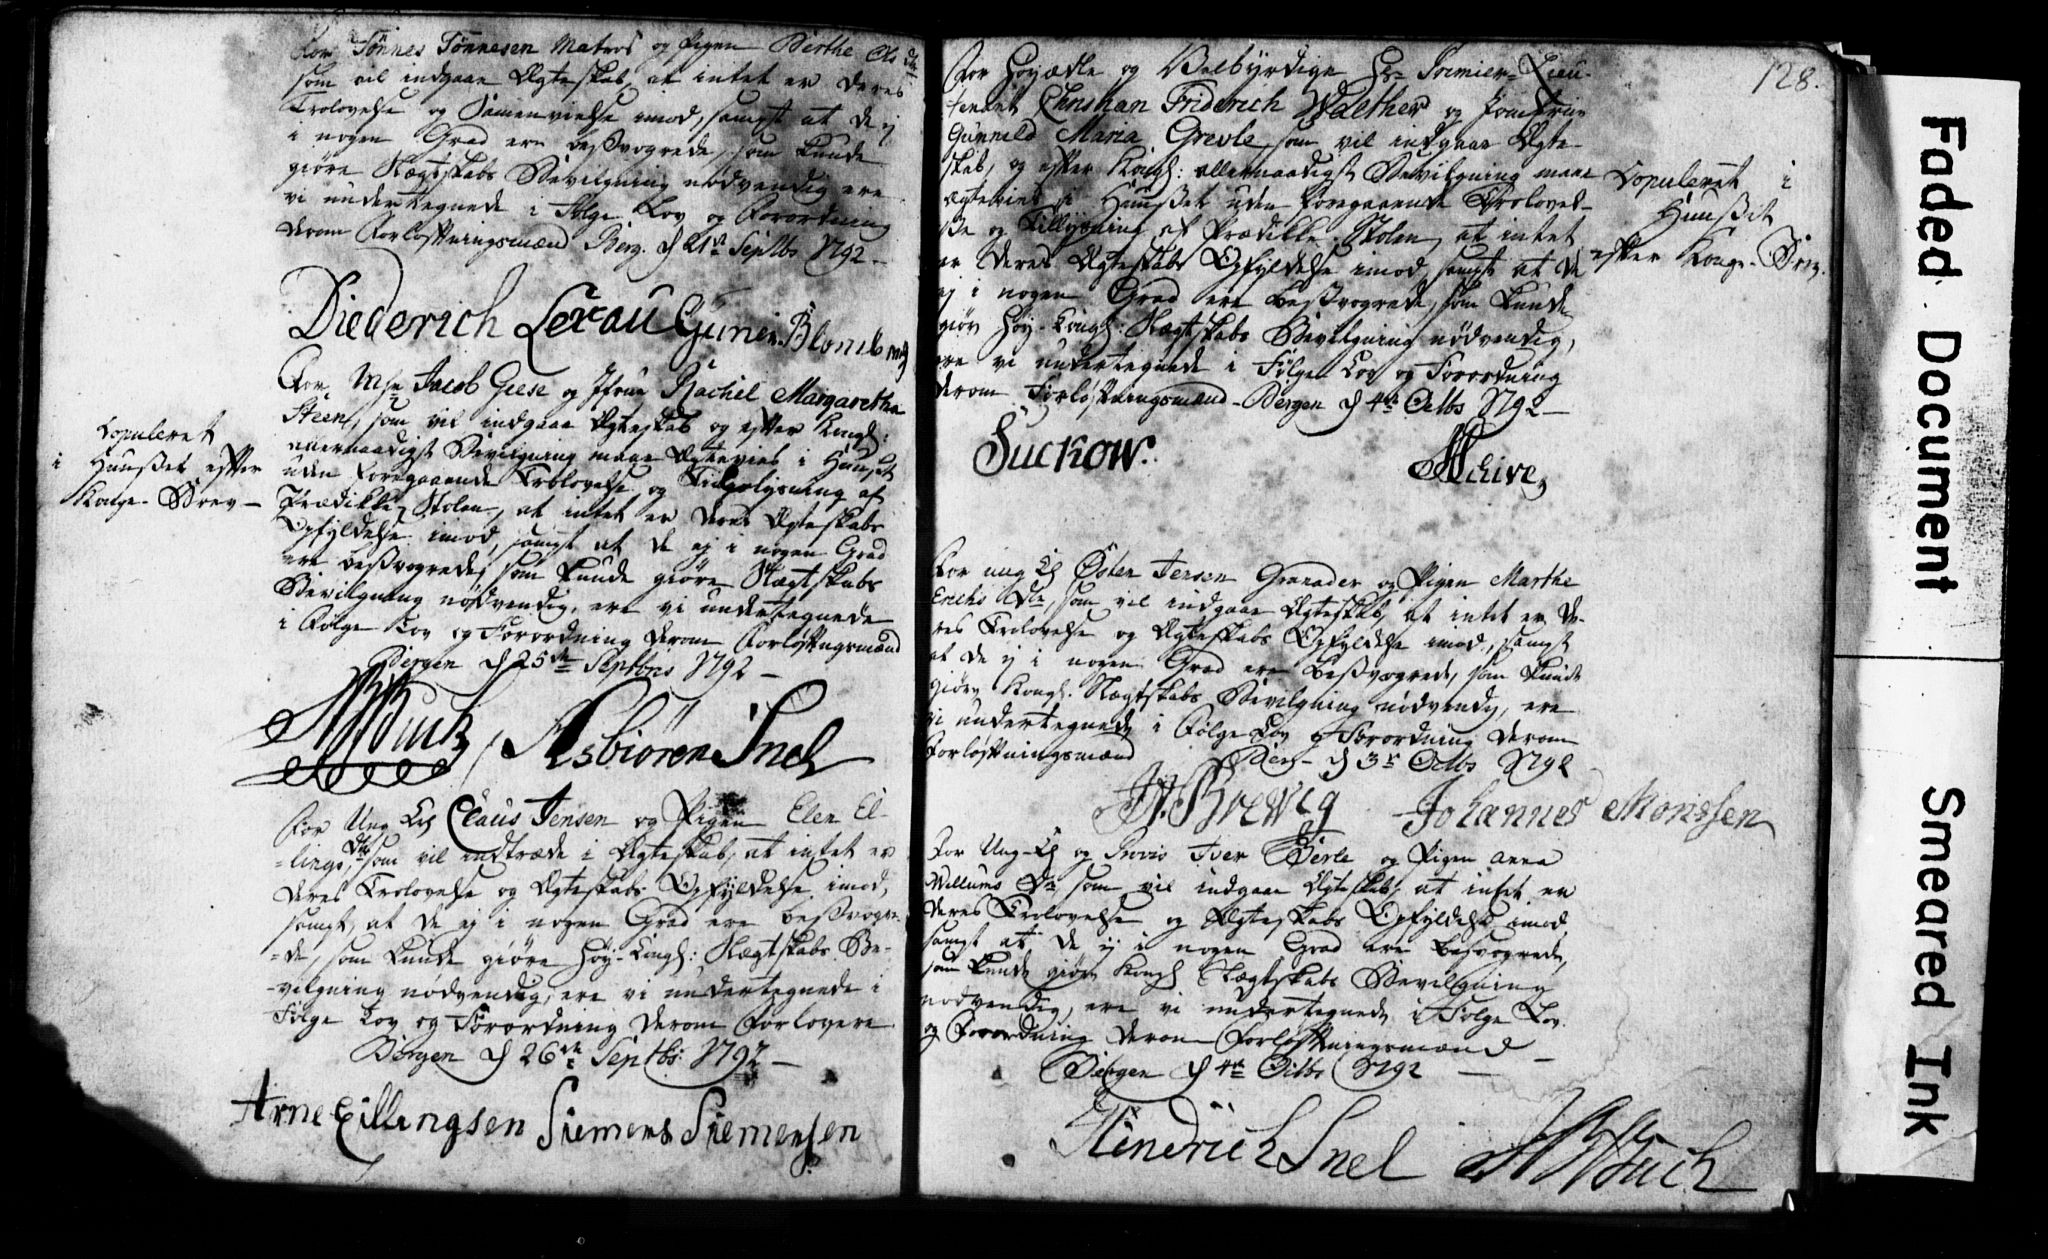 For Tönnes Tönnesen Matros og Pigen Berthe Ols dtr
som vil indgaae Ægteskab, at intet er deres
Trolovelse og Samenvielse imod, sampt at de ej
i nogen Grad ere besvogrede, som kunde
giöre Slægtskabs Bevilgning nödvendig ere
vi undertegnede i Fölge Lov og Forordning
derom Forlöftningsmænd Berg. d 21de Septbs 1792 –
Diederich Levau Guner Blomberg
For Msr Jacob Geese og Jfrue Rachel Margaretha
Steen, som vil indgaae Ægteskab og efter Kongl:
allernaadigst Bevilgning maae Ægtevies i Huuset
uden Foregaaende Trolovelse og Tillysning af
Prædikke Stolen, at intet er deres Ægteskabs
Opfyldelse imod, sampt at de ej i nogen Grad
ere besvogrede, som kunde giöre Slægtskabs
Bevilgning nödvendig, ere vi undertegnede
i Fölge Lov og Forordning derom Forlöftngsmænd
Bergen d 25de Septbris 1792 –
Copuleret
i Huuset efter
Konge-Brev –
Asbiören Snel
For Ung Kl Claus Jensen og Pigen Elen El-
-lings dtr som vil indtræde i Ægteskab, at intet er
deres Trolovelse og Ægteskabs Opfyldelse imod,
sampt, at de ej i nogen Grad ere besvogre-
-de, som kunde giöre Höy-Kongl: Slægtskabs Be-
-vilgning nödvendig, ere vi undertegnede i
Fölge Lov og Forordning derom Forlovere
Bergen d 26de Septbs: 1792 –
Arne Eillingsen Siemens Siemensen
128.
For Höyædle og Velbyrdige Hr Premier-Lieu-
tenant Christian Friderich Walther og Jomfrue
Gunneld Maria Grevle, som vil indgaae Ægte-
skab, og efter Kongl: allernaadigst Bevilgning maae
Ægtevies i Huuset uden Foregaaende Trolovel-
se og Tillysning af Prædikke Stolen, at intet
er deres Ægteskabs Opfyldelse imod, sampt at de
ej i nogen Grad ere besvogrede, som kunde
giöre Höy-Kongl: Slægtskabs Bevilgning nödvendig,
ere vi undertegnede i Fölge Lov og Forordning
derom Forlöftningsmænd – Bergen d 4de Octbs 1792 –
Copuleret i
Huuset
efter Konge-Brev.
Suckow.
For ung Kl Östen Jensen Granader og Pigen Marthe
Erichs Dtr, som vil indgaae Ægteskab, at intet er de-
res Trolovelse og Ægteskabs Opfyldelse imod, sampt
at de ej i nogen Grad ere besvogrede, som kunde
giöre Kongl. Slægtskabs Bevilgning nödvendig, ere
vi undertegnede i Fölge Lov og Forordning derom
Forlöftningsmænd Berg – d 3de Octbs 1792
Brewig Johannes Monssen
For Ung-Kl og Iver Berle og Pigen Anna
Willums Dtr som vil indgaae Ægteskab, at intet er
deres Trolovelse og Ægteskabs Opfyldelse imod,
sampt at de ej i nogen Grad ere besvogrede,
som kunde giöre Kongl Slægtskabs Bevilgning
nödvendig, ere vi undertegnede i Fölge Lov
og Forordning derom Forlöftningsmænd –
Bergen d 4de Octbs 1792 –
Hindrich Snel
Faded Document
Smeared Ink